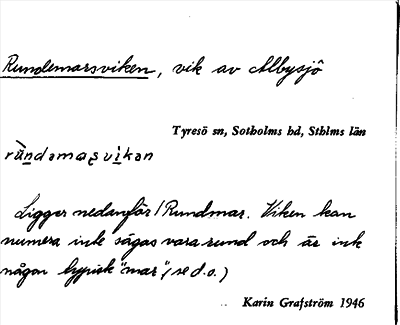 Rundemarsviken, vik av Albysjö
Tyresö sn, Sotholms hd, Sthlms län
rùndəmaʂvìkən
Ligger nedanför Rundmar. Viken kan
numera ink sägas vara rund och är ink
någon typisk "mar", (se d.o.)
Karin Grafström 1946